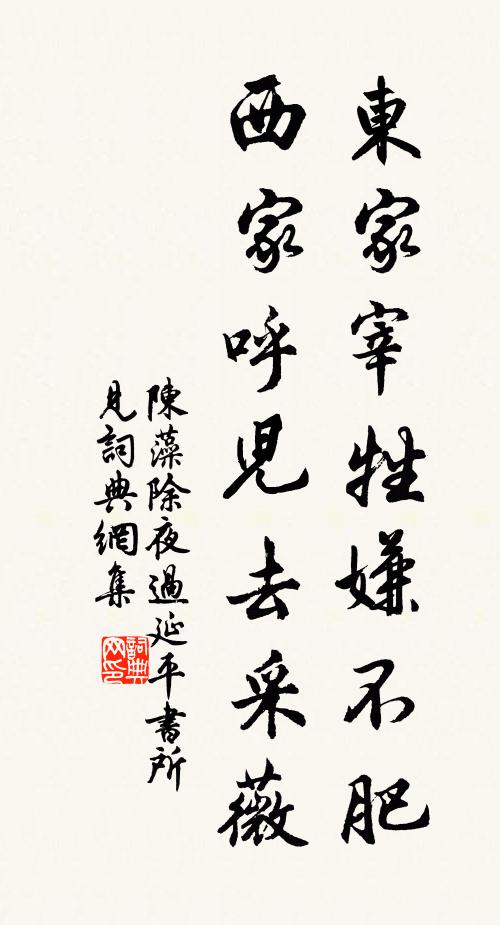 東家宰牲嫌不肥
西家呼児去采薇
陳藻除夜過延平書所
見詞典網集
詞典
网印